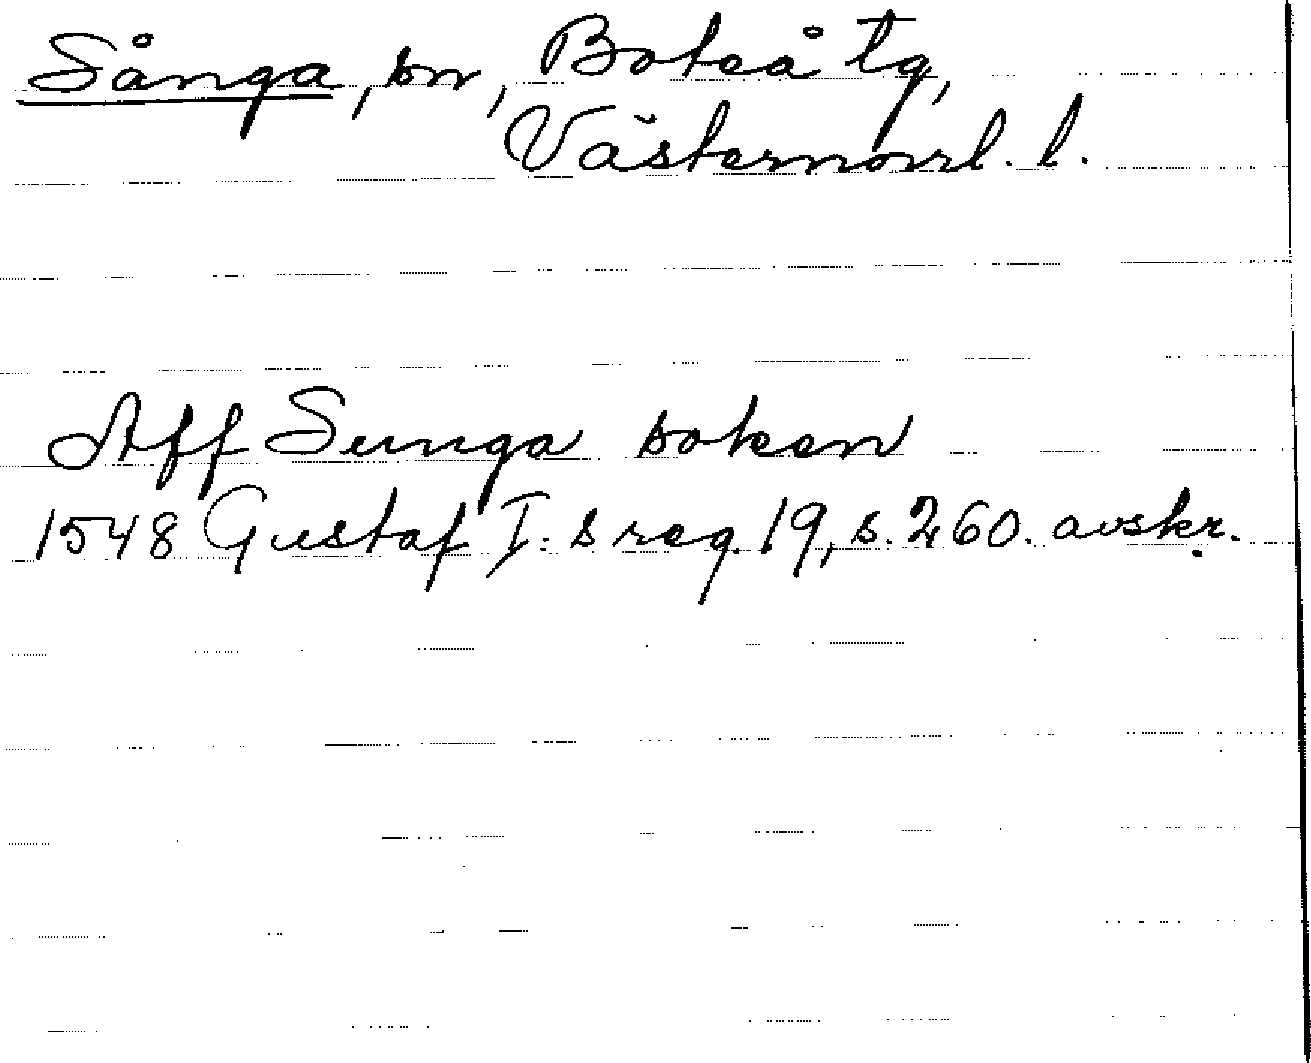 Sånga, sn, Boteå tg,
Västernorrl. l.
Aff Sunga soken
1548 Gustaf I:s reg. 19, s. 260. avskr.